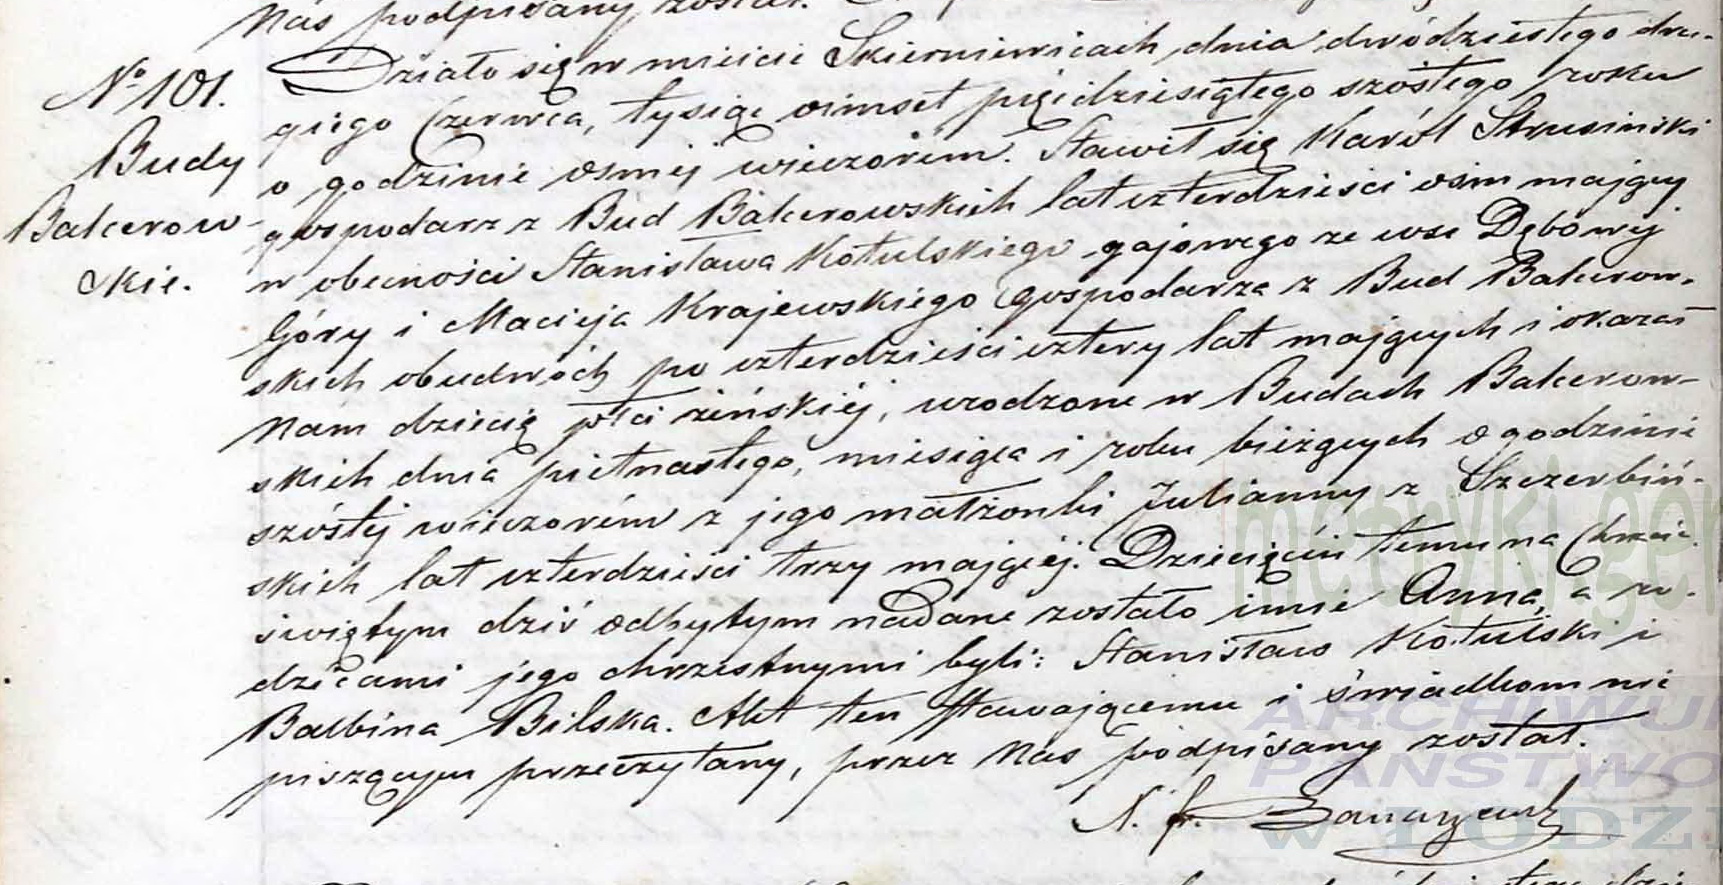 Nas podpisany został.
No 101.
Budy
Balcerow-
skie.
Działo się w mieście Skierniewicach, dnia dwódziestego dru-
giego Czerwca, tysiąc ośmset pięćdziesiątego szóstego roku
o godzinie ósmej wieczorem. Stawił się Karól Strusiński
gospodarz z Bud Balcerowskich lat czterdzieści ośm mający
w obecności Stanisława Kotulskiego gajowego ze wsi Dębowej
Góry i Macieja Krajewskiego Gospodarza z Bud Balcerow-
skich obudwóch po czterdzieści cztery lat mających i okazał
Nam dziecię płci żeńskiéj, urodzone w Budach Balcerow-
skich dnia piętnastego, miesiąca i roku bieżących o godzinie
szóstej wieczorém z jego małżonki Julianny z Szczerbiń-
skich lat czterdzieści trzy mającéj. Dziecięciu temu na Chrzcie
świętym dziś odbytym nadane zostało imie Anna, a ro-
dzicami jego chrzestnymi byli: Stanisław Kotulski i
Balbina Bilska. Akt ten stawającemu i świadkom nie
piszącym przeczytany, przez Nas podpisany został.
metryki.gen
ARCHIWU
PAŃSTWO
W ŁODZI